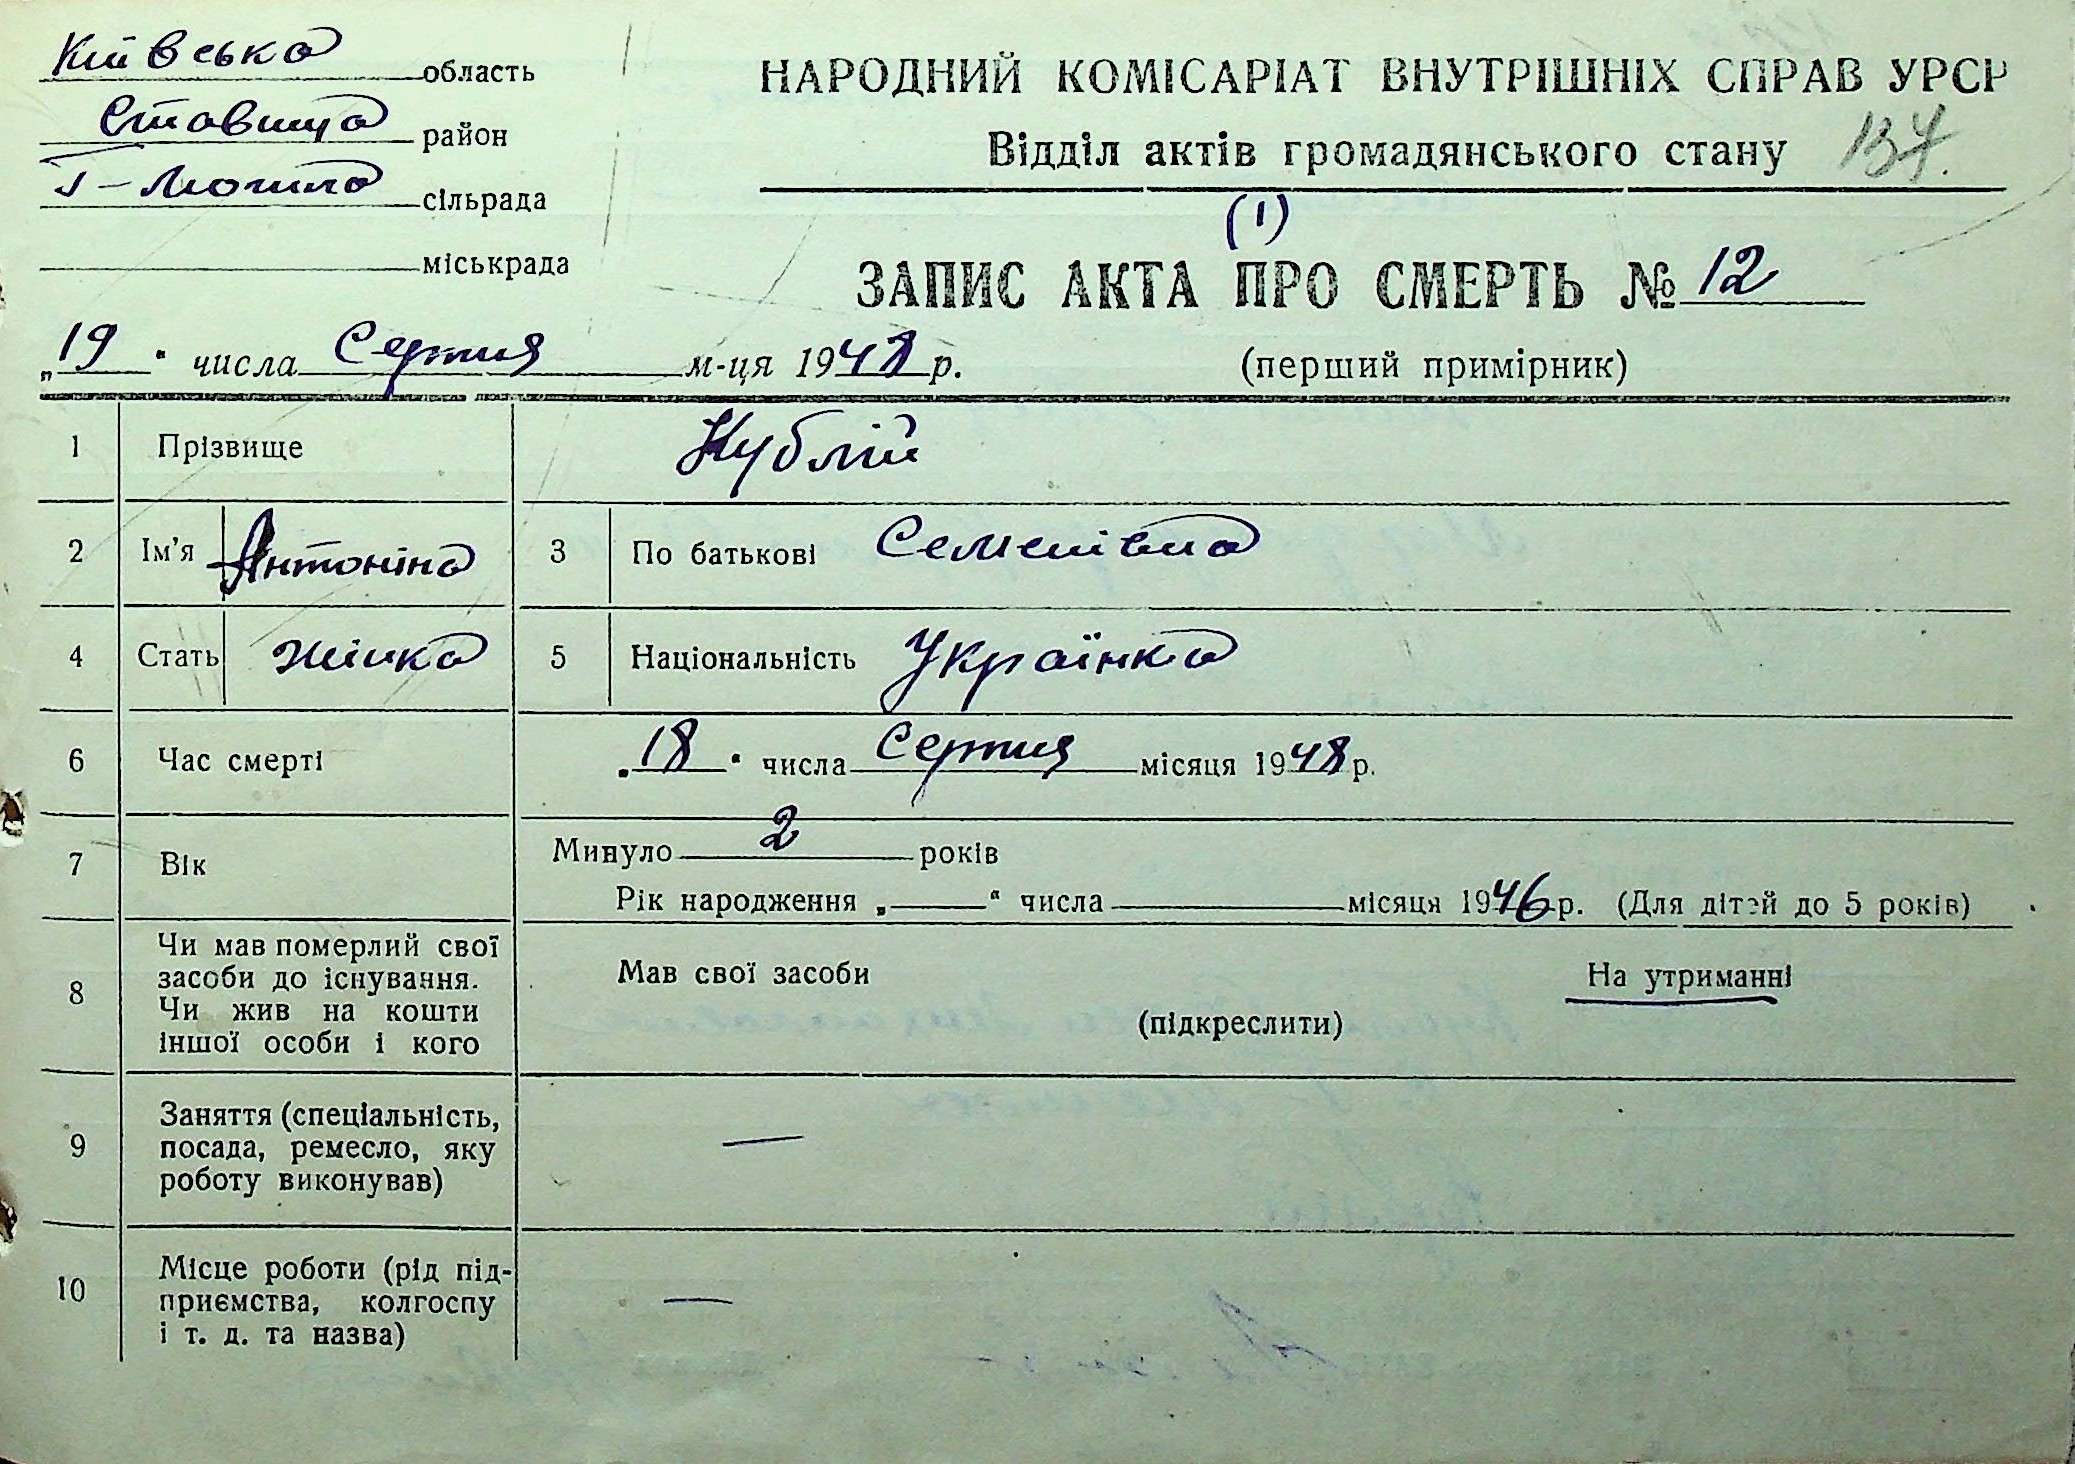 Київська область
Ставища район
Г-Могила сільрада
міськрада
НАРОДНИЙ КОМІСАРІАТ ВНУТРІШНІХ СПРАВ УРСР
Відділ актів громадянського стану 137.
(1)
ЗАПИС АКТА ПРО СМЕРТЬ № 12
(перший примірник)
„19“ числа Серпня м-ця 1948 р.
1 Прізвище Кублій
2 Ім’я Антоніна 3 По батькові Семенівна
4 Стать жінка 5 Національність Українка
6 Час смерті „18“ числа Серпня місяця 1948 р.
7 Вік Минуло 2 років
Рік народження „—“ числа місяця 1946 р. (Для дітей до 5 років)
8 Чи мав померлий свої
засоби до існування.
Чи жив на кошти
іншої особи і кого
Мав свої засоби На утриманні
(підкреслити)
9 Заняття (спеціальність,
посада, ремесло, яку
роботу виконував) —
10 Місце роботи (рід під-
приємства, колгоспу
і т. д. та назва) —